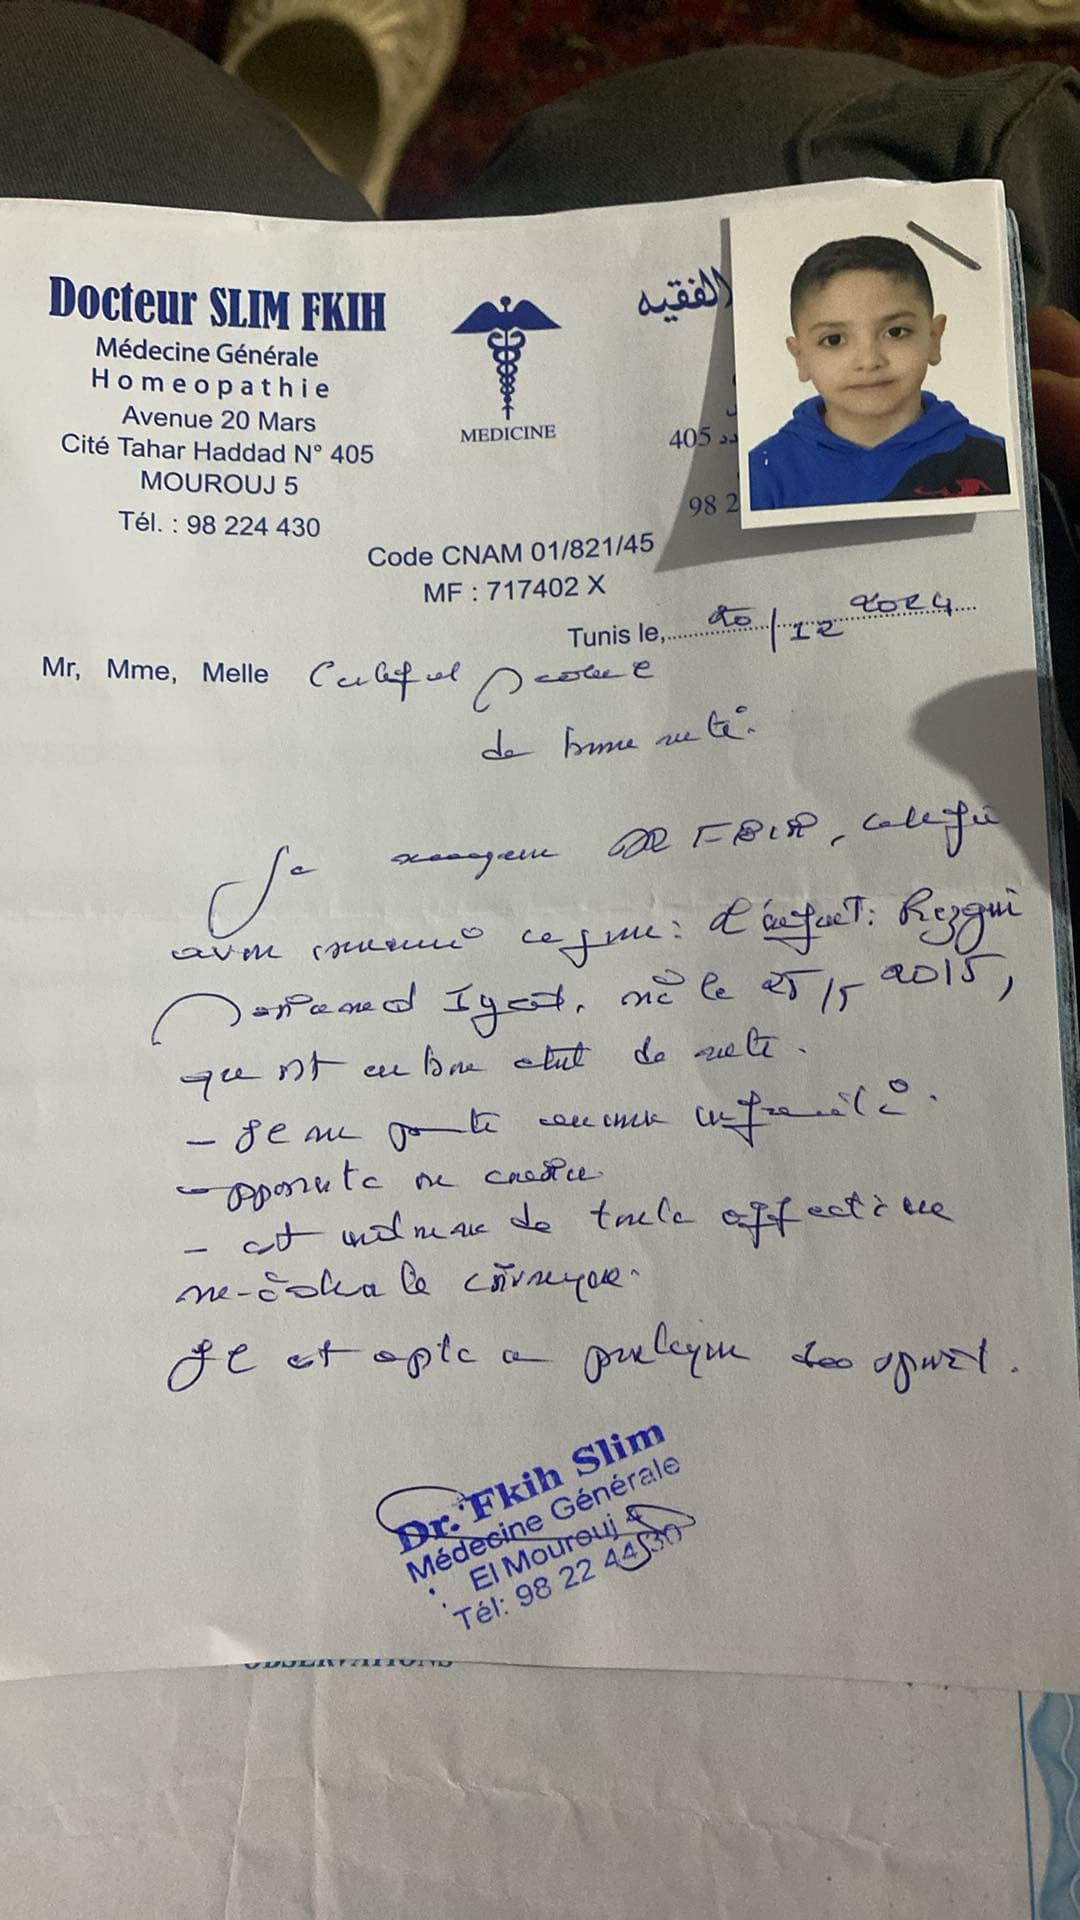 Docteur SLIM FKIH
Médecine Générale
Homeopathie
Avenue 20 Mars
Cité Tahar Haddad N° 405
MOUROUJ 5
Tél. : 98 224 430
MEDICINE
الفقيه
405
98 2
Code CNAM 01/821/45
MF : 717402 X
Tunis le, 20/12 2024
Mr, Mme, Melle Certificat
de bonne santé.
Je soussigné DR FKIH, certifie
avoir examiné ce jour : L'enfant : Rezgui
Mohamed Iyed, né le 25/5 2015,
qui est en bon état de santé.
- Il ne porte aucune infirmité.
-apparente ou cachée
- est indemne de toute affection
Il est apte à pratiquer des sport.
Dr. Fkih Slim
Médecine Générale
El Mourouj
Tél: 98 22 44 30
OBSERVATIONS